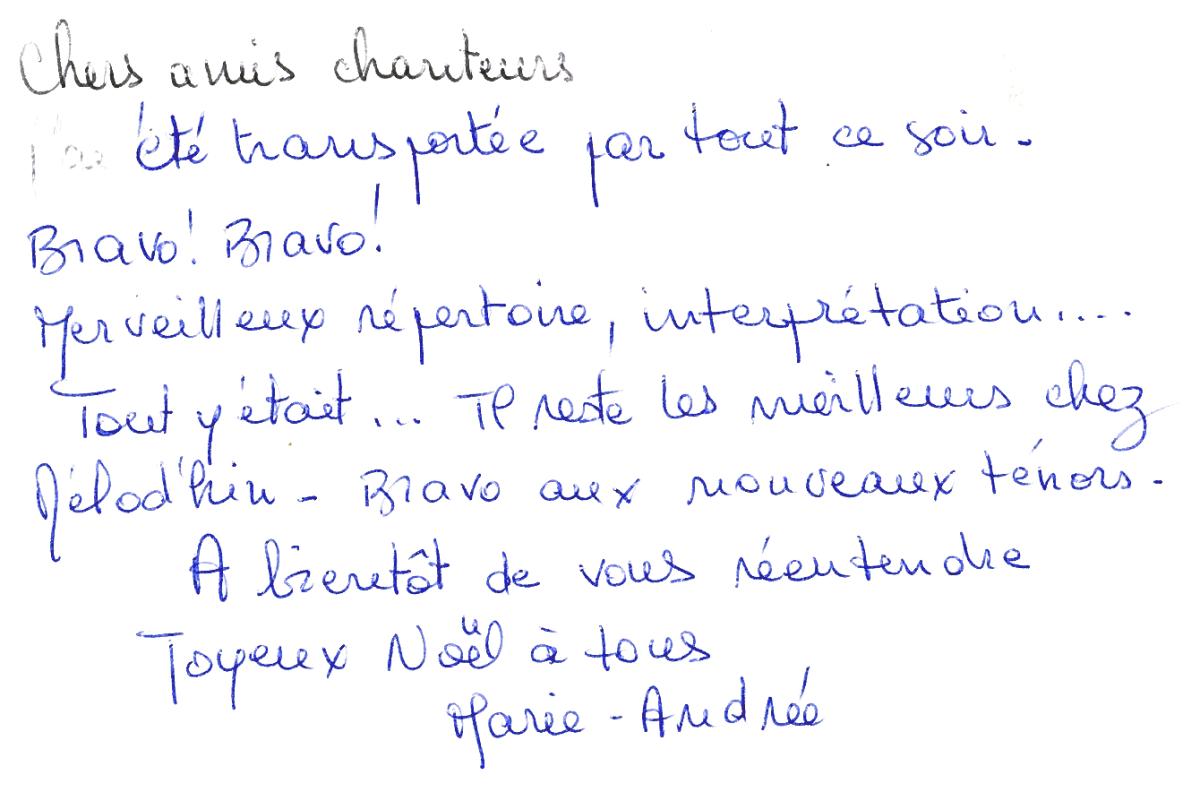 Chers amis chanteurs
J'ai été transportée par tout ce soir.
Bravo! Bravo!
Merveilleux répertoire, interprétation.....
Tout y était... Il reste les meilleurs chez
Mélod'hin - Bravo aux nouveaux ténors.
A bientôt de vous réentendre
Joyeux Noël à tous
Marie-Andrée